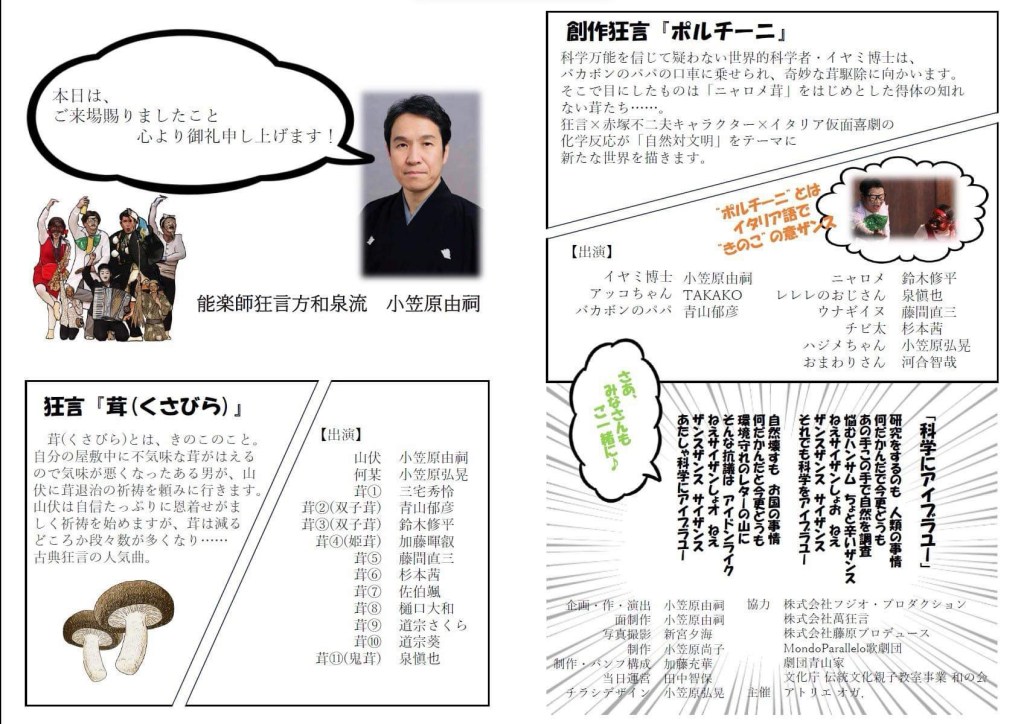 本日は、
ご来場賜りましたこと
心より御礼申し上げます！
能楽師狂言方和泉流　小笠原由祠
狂言『茸(くさびら)』
茸(くさびら)とは、きのこのこと。
自分の屋敷中に不気味な茸がはえる
ので気味が悪くなったある男が、山
伏に茸退治の祈祷を頼みに行きます。
山伏は自信たっぷりに恩着せがま
しく祈祷を始めますが、茸は減る
どころか段々数が多くなり……
古典狂言の人気曲。
【出演】
山伏　小笠原由祠
何某　小笠原弘晃
茸①　三宅秀怜
茸②(双子茸)　青山郁彦
茸③(双子茸)　鈴木修平
茸④(姫茸)　加藤暉叡
茸⑤　藤間直三
茸⑥　杉本茜
茸⑦　佐伯颯
茸⑧　樋口大和
茸⑨　道宗さくら
茸⑩　道宗葵
茸⑪(鬼茸)　泉愼也
創作狂言『ポルチーニ』
科学万能を信じて疑わない世界的科学者・イヤミ博士は、
バカボンのパパの口車に乗せられ、奇妙な茸駆除に向かいます。
そこで目にしたものは「ニャロメ茸」をはじめとした得体の知れ
ない茸たち……。
狂言×赤塚不二夫キャラクター×イタリア仮面喜劇の
化学反応が「自然対文明」をテーマに
新たな世界を描きます。
"ポルチーニ"とは
イタリア語で
"きのこ"の意ザンス
【出演】
イヤミ博士　小笠原由祠
アッコちゃん　TAKAKO
バカボンのパパ　青山郁彦
ニャロメ　鈴木修平
レレレのおじさん　泉愼也
ウナギイヌ　藤間直三
チビ太　杉本茜
ハジメちゃん　小笠原弘晃
おまわりさん　河合智哉
さあ、
みなさんも
ご一緒に♪
「科学にアイブラユー」
研究をするのも 人類の事情
何だかんだで今更どうも
あの手この手で自然を調査
悩むハンサム ちょと辛いザンス
ねえサイザンしょお ねえ
ザンスザンス サイザンス
それでも科学をアイブラユー
自然壊すも お国の事情
何だかんだと今更どうも
環境守れのレターの山に
そんな抗議は アイドンライク
ねえサイザンしょオ ねえ
ザンスザンス サイザンス
あたしゃ科学にアイブラユー
企画・作・演出　小笠原由祠
面制作　小笠原由祠
写真撮影　新宮夕海
制作　小笠原尚子
制作・パンフ構成　加藤充華
当日運営　田中智保
チラシデザイン　小笠原弘晃
協力　株式会社フジオ・プロダクション
株式会社萬狂言
株式会社藤原プロデュース
MondoParallelo歌劇団
劇団青山家
文化庁 伝統文化親子教室事業 和の会
主催　アトリエ オガ.